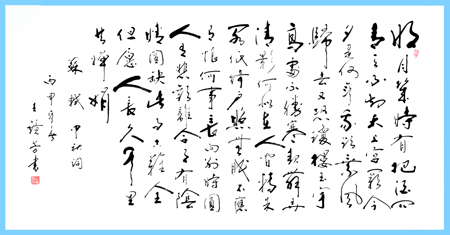 明月幾時有把酒問
青天不知天上宮闕今
夕是何年我欲乘風
歸去又恐瓊樓玉宇
高處不勝寒起舞弄
清影何似在人間轉朱
閣低綺户照無眠不應
有恨何事長向別時圓
人有悲歡離合月有陰
晴圓缺此事古難全
但願人長久千里
共嬋娟
蘇軾中秋詞
丙申年
書